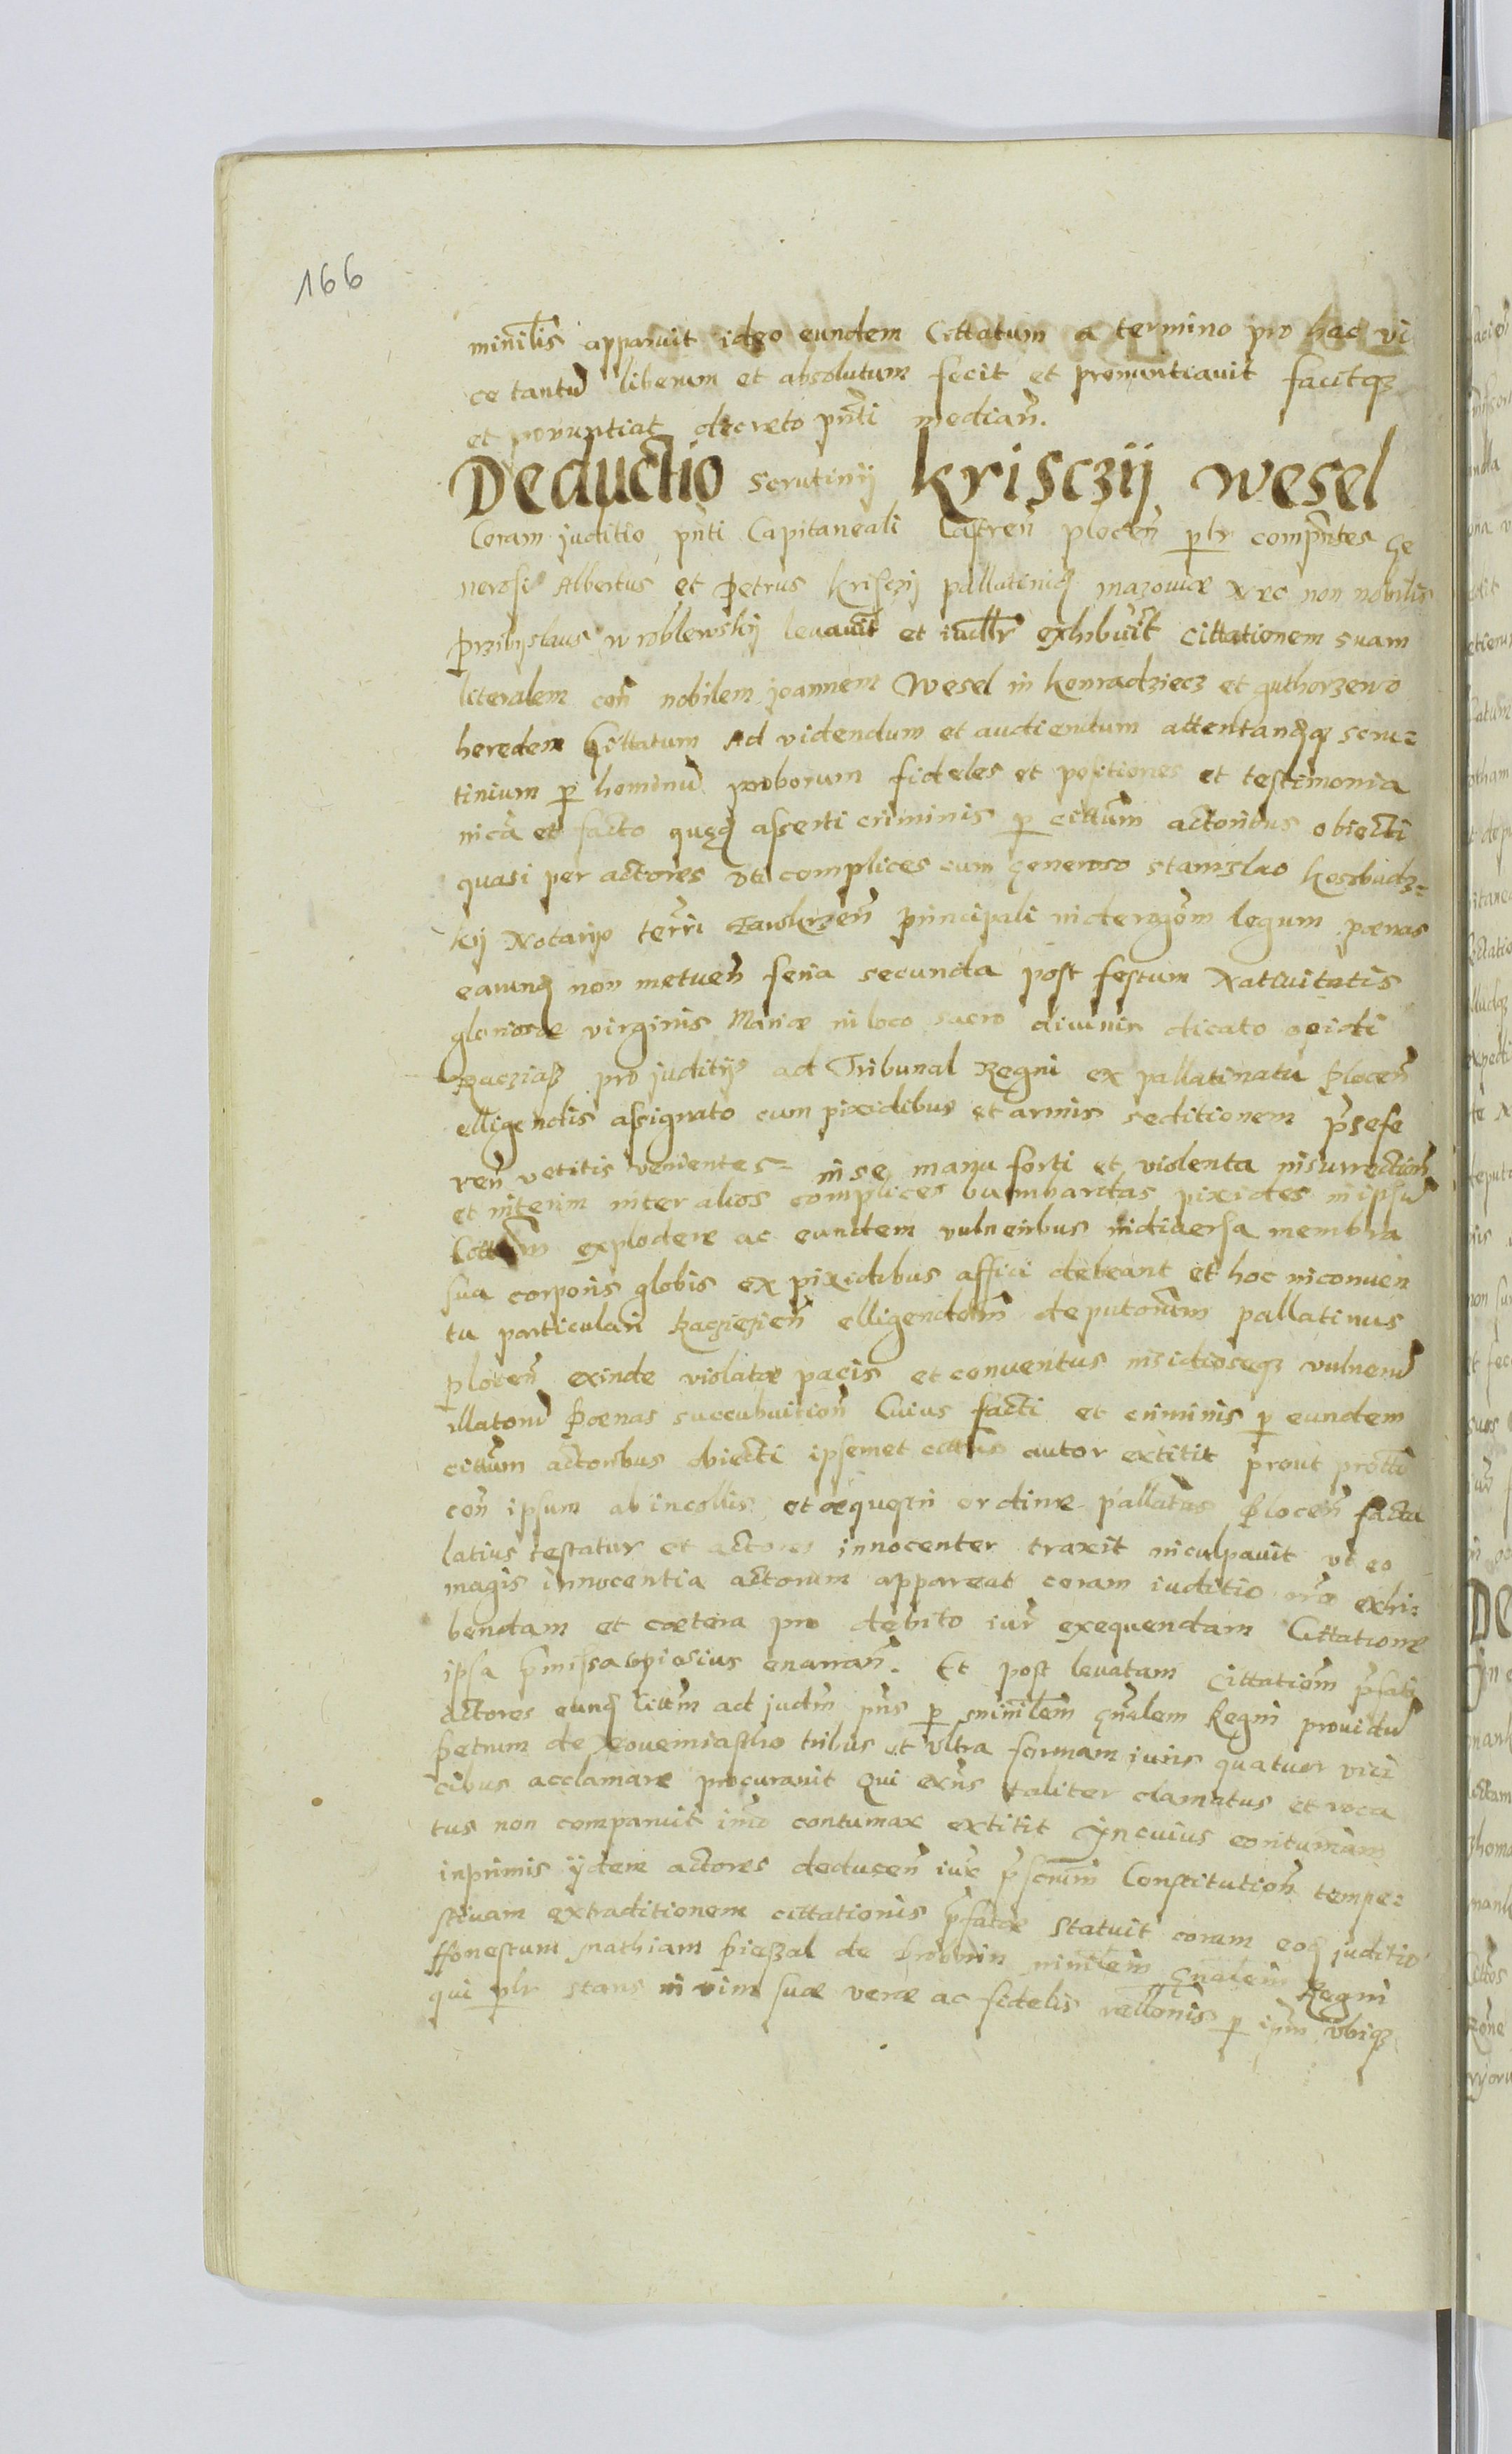 166
minilis apparuit ideo eundem Cittatum a termino pro hac vi
ce tantu liberum et absolutum fecit et pronuntiavit facitqz
et pronuntiat decreto pnti median.
Deductio scrutinij Krisczij Wesel
Coram juditio pnti Capitaneali Castren plocen plr compntes Ge
nerosi Albertus et Petrus Krisczij pallatinidz mazoviae Nec non nobilis
Przibislaus Wroblewskij levavit et exhibuit cittationem suam
literalem con nobilem joannem Wesel in Konradziecz et guthorzewo
heredem Cittatum Ad videndum et audiendum attentandqz scru=
tinium p hominu proborum fideles et positiones et testimonia
et facto asserti criminis p cittum actoribus obiecti
quasi per actores vti complices cum generoso Stanislao Kossbudz=
kij Notario terri Zawkrzen principali legum poenas
non metuen feria secunda post festum Nativitatis
gloriosae virginis Mariae in loco sacro divinis dicato opidi
Racziasz pro juditijs ad Tribunal Regni ex pallatinatu plocen
elligendis assignato cum pixidibus et armis seditionem psefe
ren vetitis venientes= in se manu forti et violenta insurrection
et interim inter alios complices bumbardas pixides in ipsu
Cittum explodere ac eundem vulneribus in diversa membra
sua corporis globis ex pixidibus affici debeant et hoc in conven
tu particulari Raczieyien elligendorm deputorum pallatinus
plocen exinde violatae pacis et conventus insidioseqz vulneru
illatoru poenas succubuition Cuius facti et criminis p eundem
cittum actoribus obiecti ipsemet cittus autor extitit prout protto
con ipsum ab incollis et ordine pallatus plocen facta
latius testatur et actores innocenter traxit inculpavit vt eo
magis innocentia actorum appareat coram iuditio exhi=
bendam et caetera pro debito iur exequendam Cittatione
ipsa pmissa copiosius enarran. Et post levatam Cittationem pfati
actores eundz Cittum ad judm pns p minilem gnalem Regni providu
Petrum de tribus et vltra formam iuris quatuor vici
cibus acclamare procuravit Qui exns taliter clamatus et voca
tus non comparuit imo contumax extitit In cuius contumam
inprimis ijdem actores deducen iuxe pscrum Constitution tempe=
stivam extraditionem cittationis pfatae Statuit coram eodz juditio
Honestum Mathiam Pieszal de Drobnin minilem Gnalem Regni
qui plr stans in vim suae verae ac fidelis rellonis p ipm vbiqz